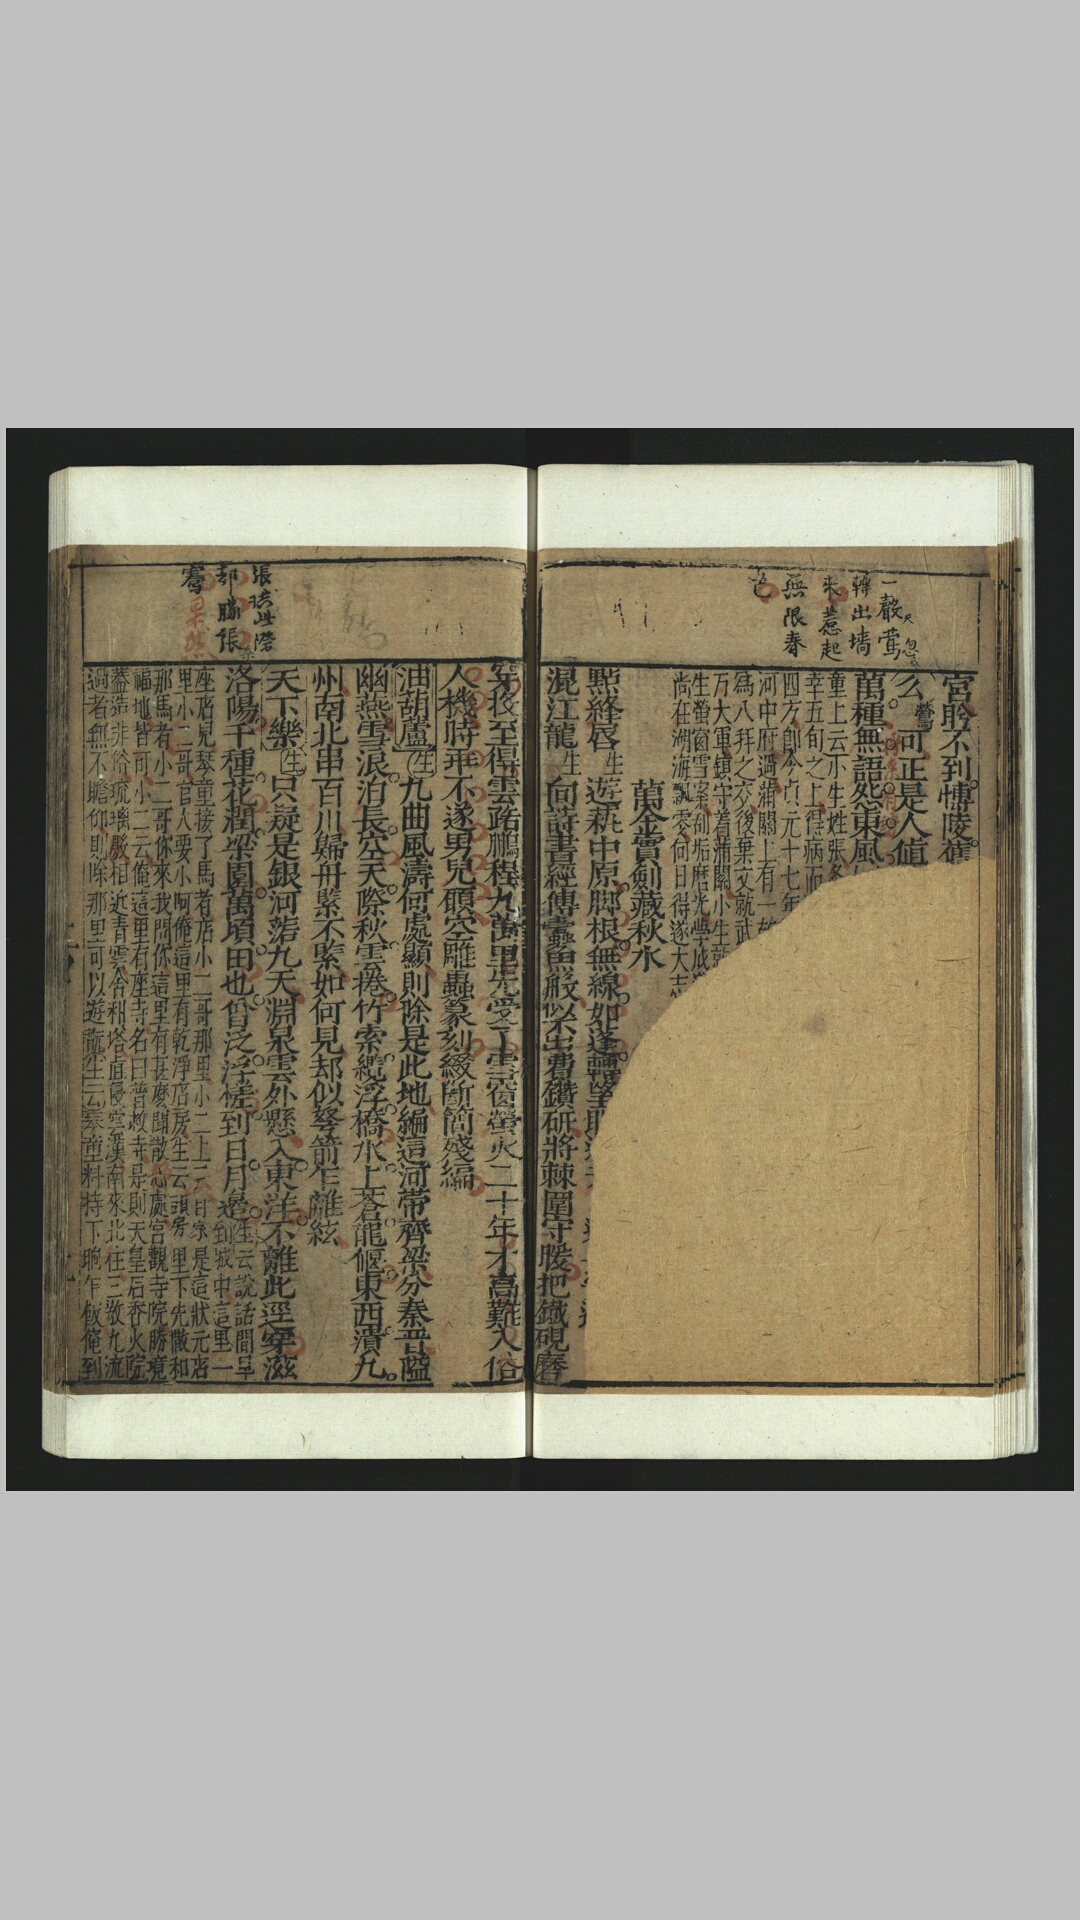 一聲鶯
轉出墻
來惹起
無限春
色
宮盼不到博陵舊
么鶯可正是人值
萬種無語怨東風
童上云小生姓張名
幸五旬之上得病而
四方即今貞元十七年
河中府過蒲關上有一故
爲八拜之交後棄文就武
万大軍鎮守着蒲關小生就
生螢窗雪案刮垢磨光學成
尚在湖海飄零何日得遂大志
萬金賣劍藏秋水
點絳唇 生 遊藝中原脚根無線如蓬轉望眼
混江龍 生 向詩書經傳蠹魚般似不出費鑽研將棘圍守暖把鐵硯磨
穿投至得雲路鵬程九萬里先受了雪窗螢火二十年才高難入俗
人機時乖不遂男兒願空雕蟲篆刻綴斷簡殘編
油葫蘆 生 九曲風濤何處顯則除是此地編這河帶齊梁分秦晉隘
幽燕雪浪泊長空天際秋雲捲竹索纜浮橋水上蒼龍偃東西潰九
州南北串百川歸舟緊不緊如何見却似弩箭乍離絃
天下樂 生 只疑是銀河落九天淵泉雲外懸入東洋不離此逕穿滋
洛陽千種花潤梁園萬頃田也曾泛浮槎到日月邊 生云說話間早
到城中這里一
座店兒琴童接了馬者店小二哥那里小二上云自家是這狀元店
里小二哥官人要小呵俺這里有乾淨店房生云頭房里下先散和
那馬者小二哥你來我問你這里有甚麽閒散心處宮觀寺院勝境
福地皆可小二云俺這里有座寺名曰普救寺是則天皇后香火院
蓋造非俗琉璃殿相近青雲舍利塔直侵空漢南來北往三教九流
過者無不瞻仰則除那里可以遊翫生云琴童料持下晌午飯俺到
張珙此際
却勝張
騫